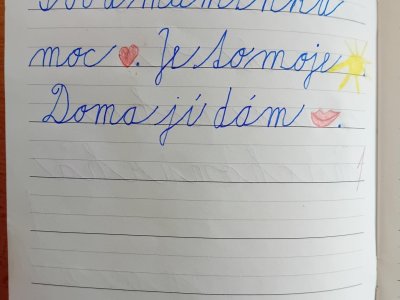 moc ❤. Je to moje ☀.
Doma jí dám 👄.